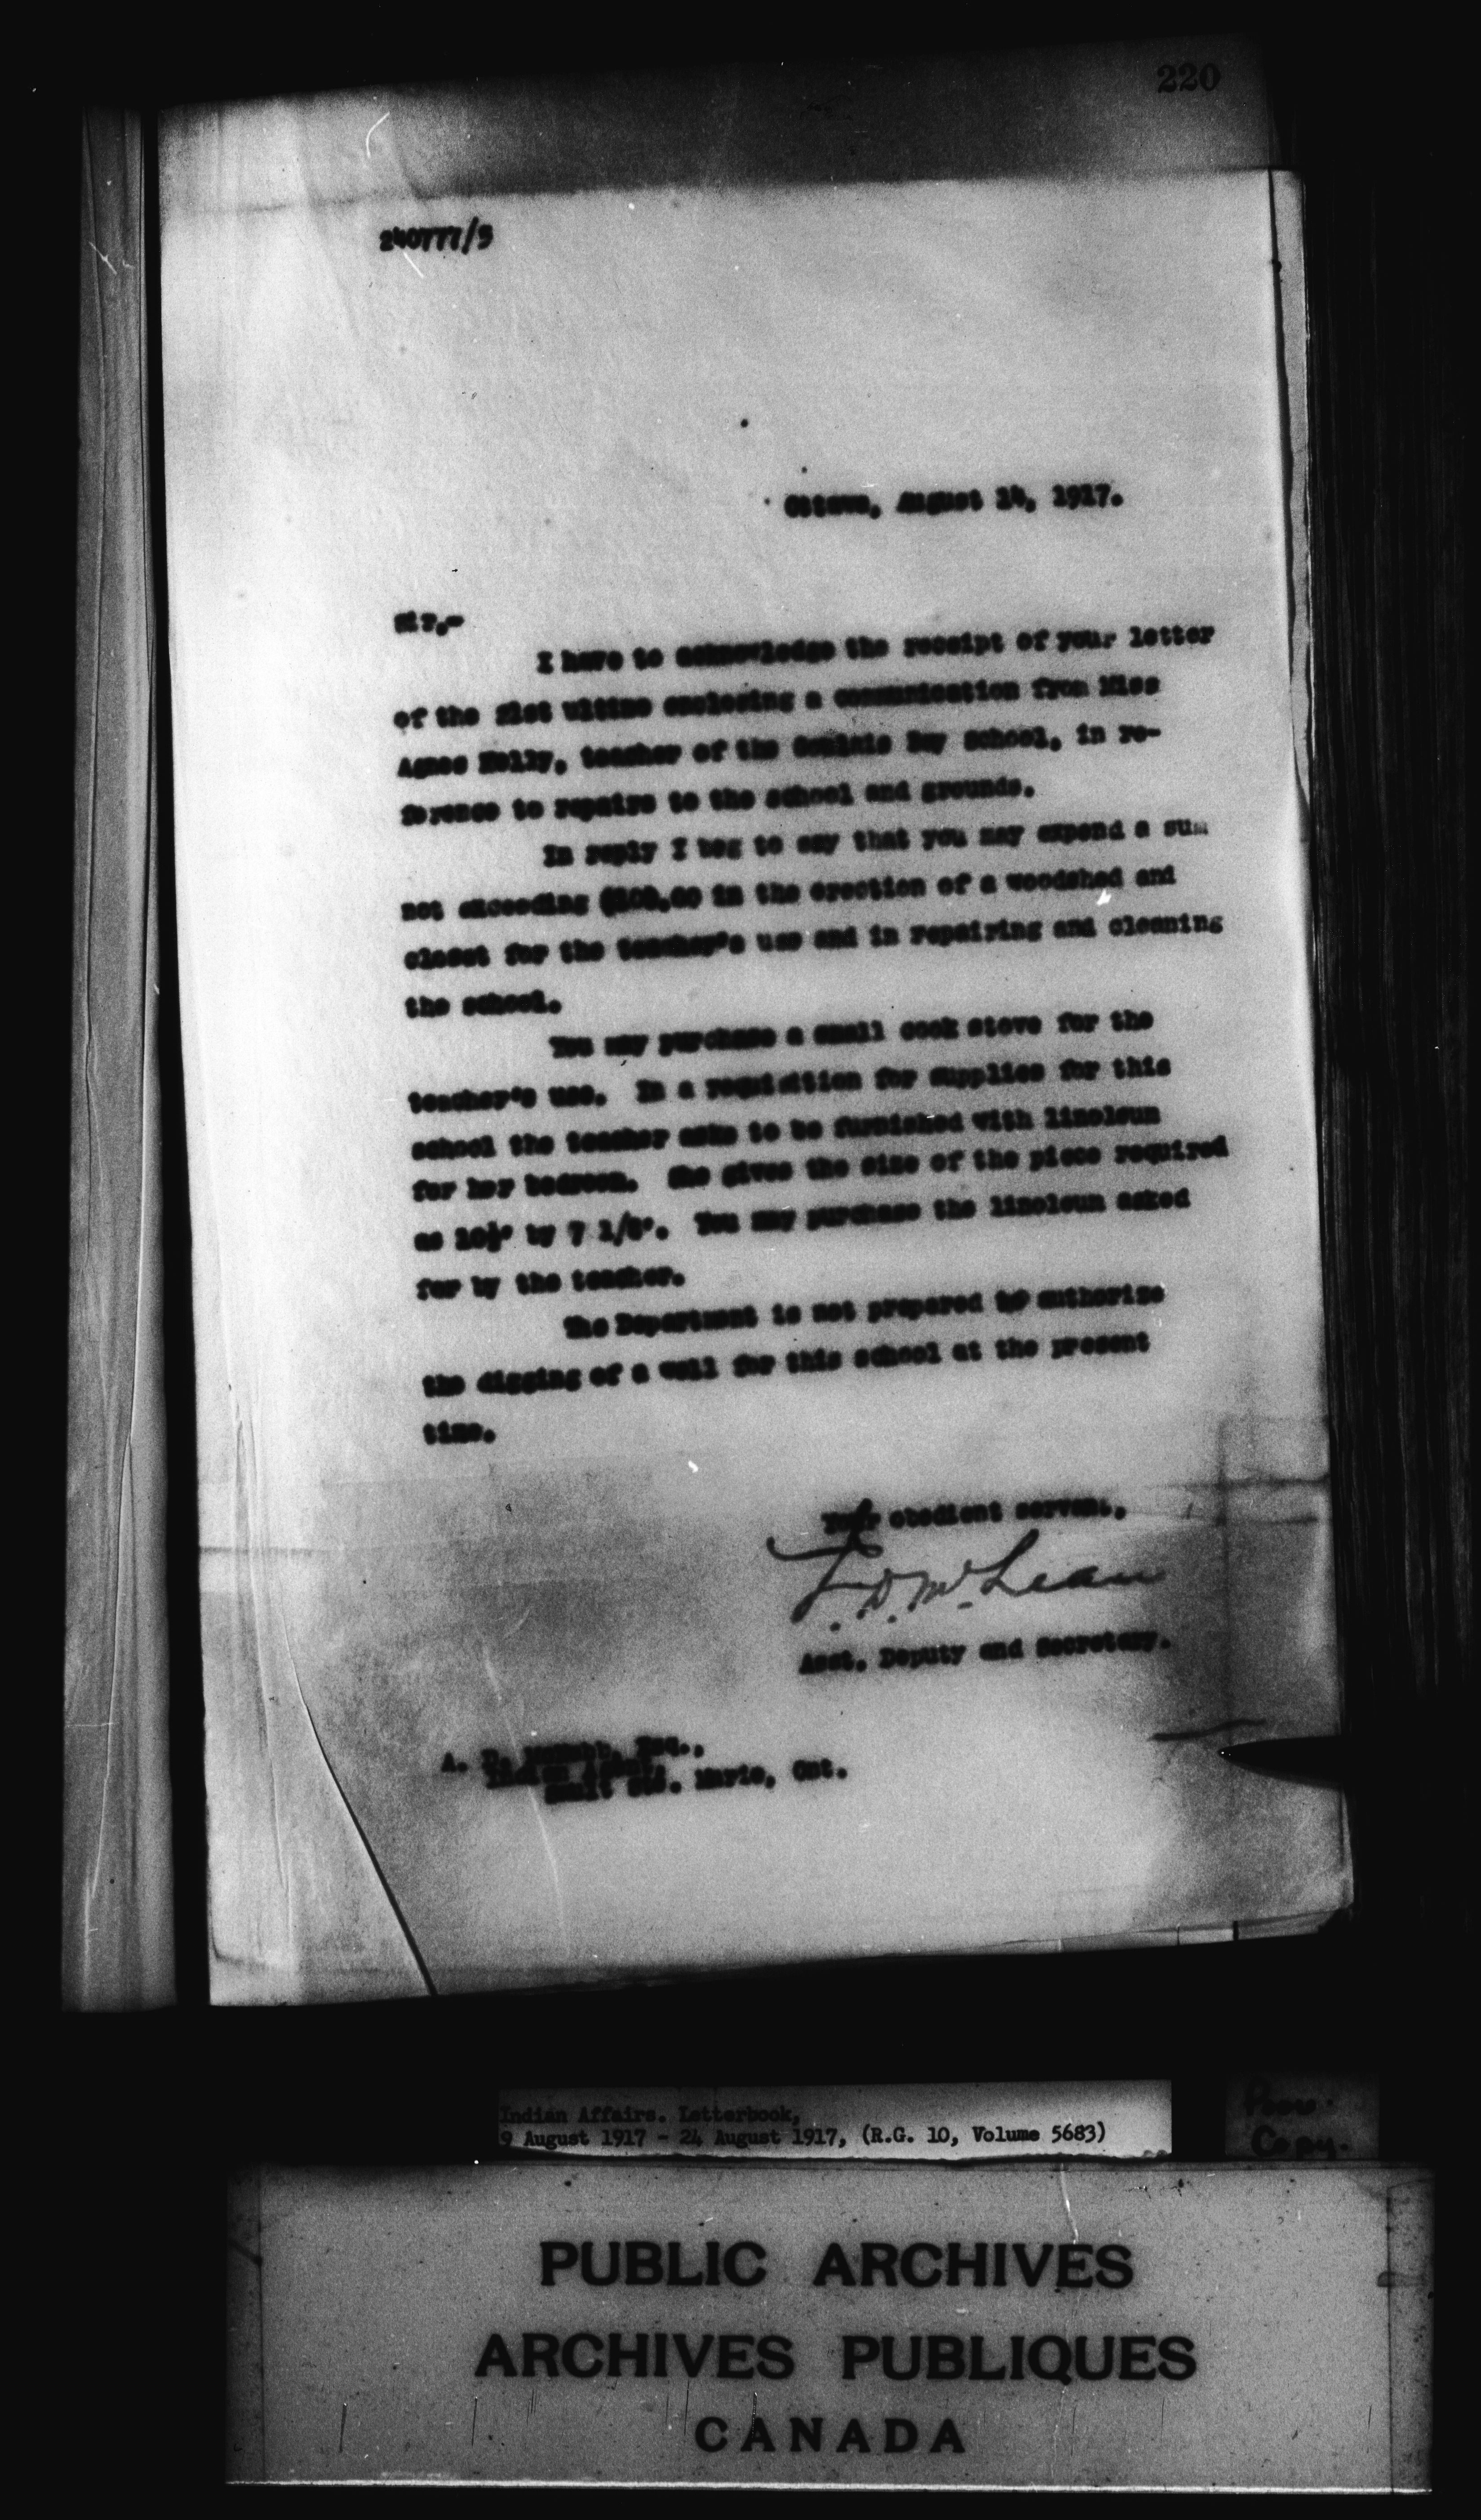 220
240777/5
Ottawa, August 14, 1917.
Sir,-
I have to acknowledge the receipt of your letter
of the 21st ultimo enclosing a communication from Miss
Agnes Kelly, teacher of the Goulais Bay school, in re-
ference to repairs to the school and grounds.
In reply I beg to say that you may expend a sum
not exceeding $100.00 in the erection of a woodshed and
closet for the teacher's use and in repairing and cleaning
the school.
You may purchase a small cook stove for the
teacher's use. In a requisition for supplies for this
school the teacher asks to be furnished with linoleum
for her bedroom. She gives the size of the piece required
as by 7 You may purchase the linoleum asked
for by the teacher.
The Department is not prepared to authorize
the digging of a well for this school at the present
time.
Your obedient servant,
J. D. McLean
Asst. Deputy and Secretary.
A. D. McNabb, Esq.,
Indian Agent,
Sault Ste. Marie, Ont.
Indian Affairs. Letterbook,
9 August 1917 - 24 August 1917, (R.G. 10, Volume 5683)
Poor
Copy.
PUBLIC ARCHIVES
ARCHIVES PUBLIQUES
CANADA